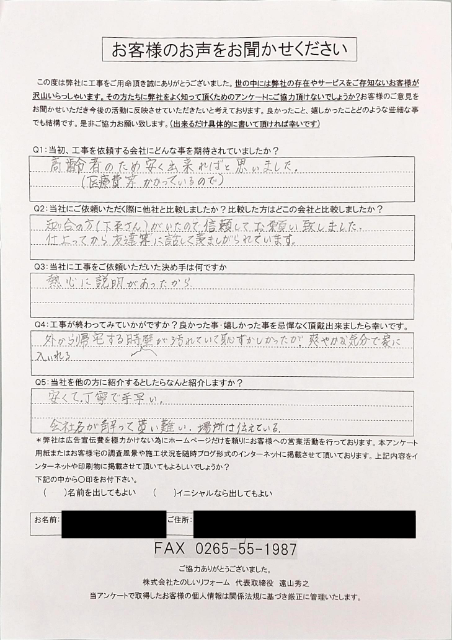 お客様のお声をお聞かせください
この度は弊社に工事をご用命頂き誠にありがとうございました。世の中には弊社の存在やサービスをご存知ないお客様が
沢山いらっしゃいます。その方たちに弊社をよく知って頂くためのアンケートにご協力頂けないでしょうか?お客様のご意見を
お聞かせいただき今後の活動に反映させていただきたいと考えております。良かったこと、嬉しかったことどのような些細な事
でも結構です。是非ご協力お願い致します。(出来るだけ具体的に書いて頂ければ幸いです)
Q1:当初、工事を依頼する会社にどんな事を期待されていましたか?
高齢者のため安く出来ればと思いました。
(医療費等かかっているので)
Q2:当社にご依頼いただく際に他社と比較しましたか?比較した方はどこの会社と比較しましたか?
知合の方(下平さん)がいたので信頼してお願い致しました。
仕上ってから友達等に話して羨ましがられています。
Q3:当社に工事をご依頼いただいた決め手は何ですか
熱心に説明があったから
Q4:工事が終わってみていかがですか?良かった事・嬉しかった事を忌憚なく頂戴出来ましたら幸いです。
外から帰宅する時壁が汚れていて恥ずかしかったが、爽やかな気分で家に
入いれる
Q5:当社を他の方に紹介するとしたらなんと紹介しますか?
安くて、丁寧で手早い。
会社名が解って貰い難い、場所は伝えている。
*弊社は広告宣伝費を極力かけない為にホームページだけを頼りにお客様への営業活動を行っております。本アンケート
用紙またはお客様宅の調査風景や施工状況を随時ブログ形式のインターネットに掲載させて頂いております。上記内容をイ
ンターネットや印刷物に掲載させて頂いてもよろしいでしょうか?
下記の中から〇印をお付下さい。
( )名前を出してもよい ( )イニシャルなら出してもよい
お名前: ご住所:
FAX 0265-55-1987
ご協力ありがとうございました。
株式会社たのしいリフォーム 代表取締役 遠山秀之
当アンケートで取得したお客様の個人情報は関係法規に基づき厳正に管理いたします。